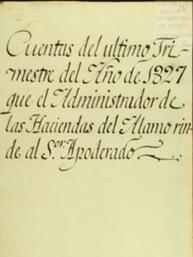 Cuentas del ultimo Tri-
mestre del Año de 1827
que el Administrador de
las Haciendas del Alamo rin-
de al S.or Apoderado